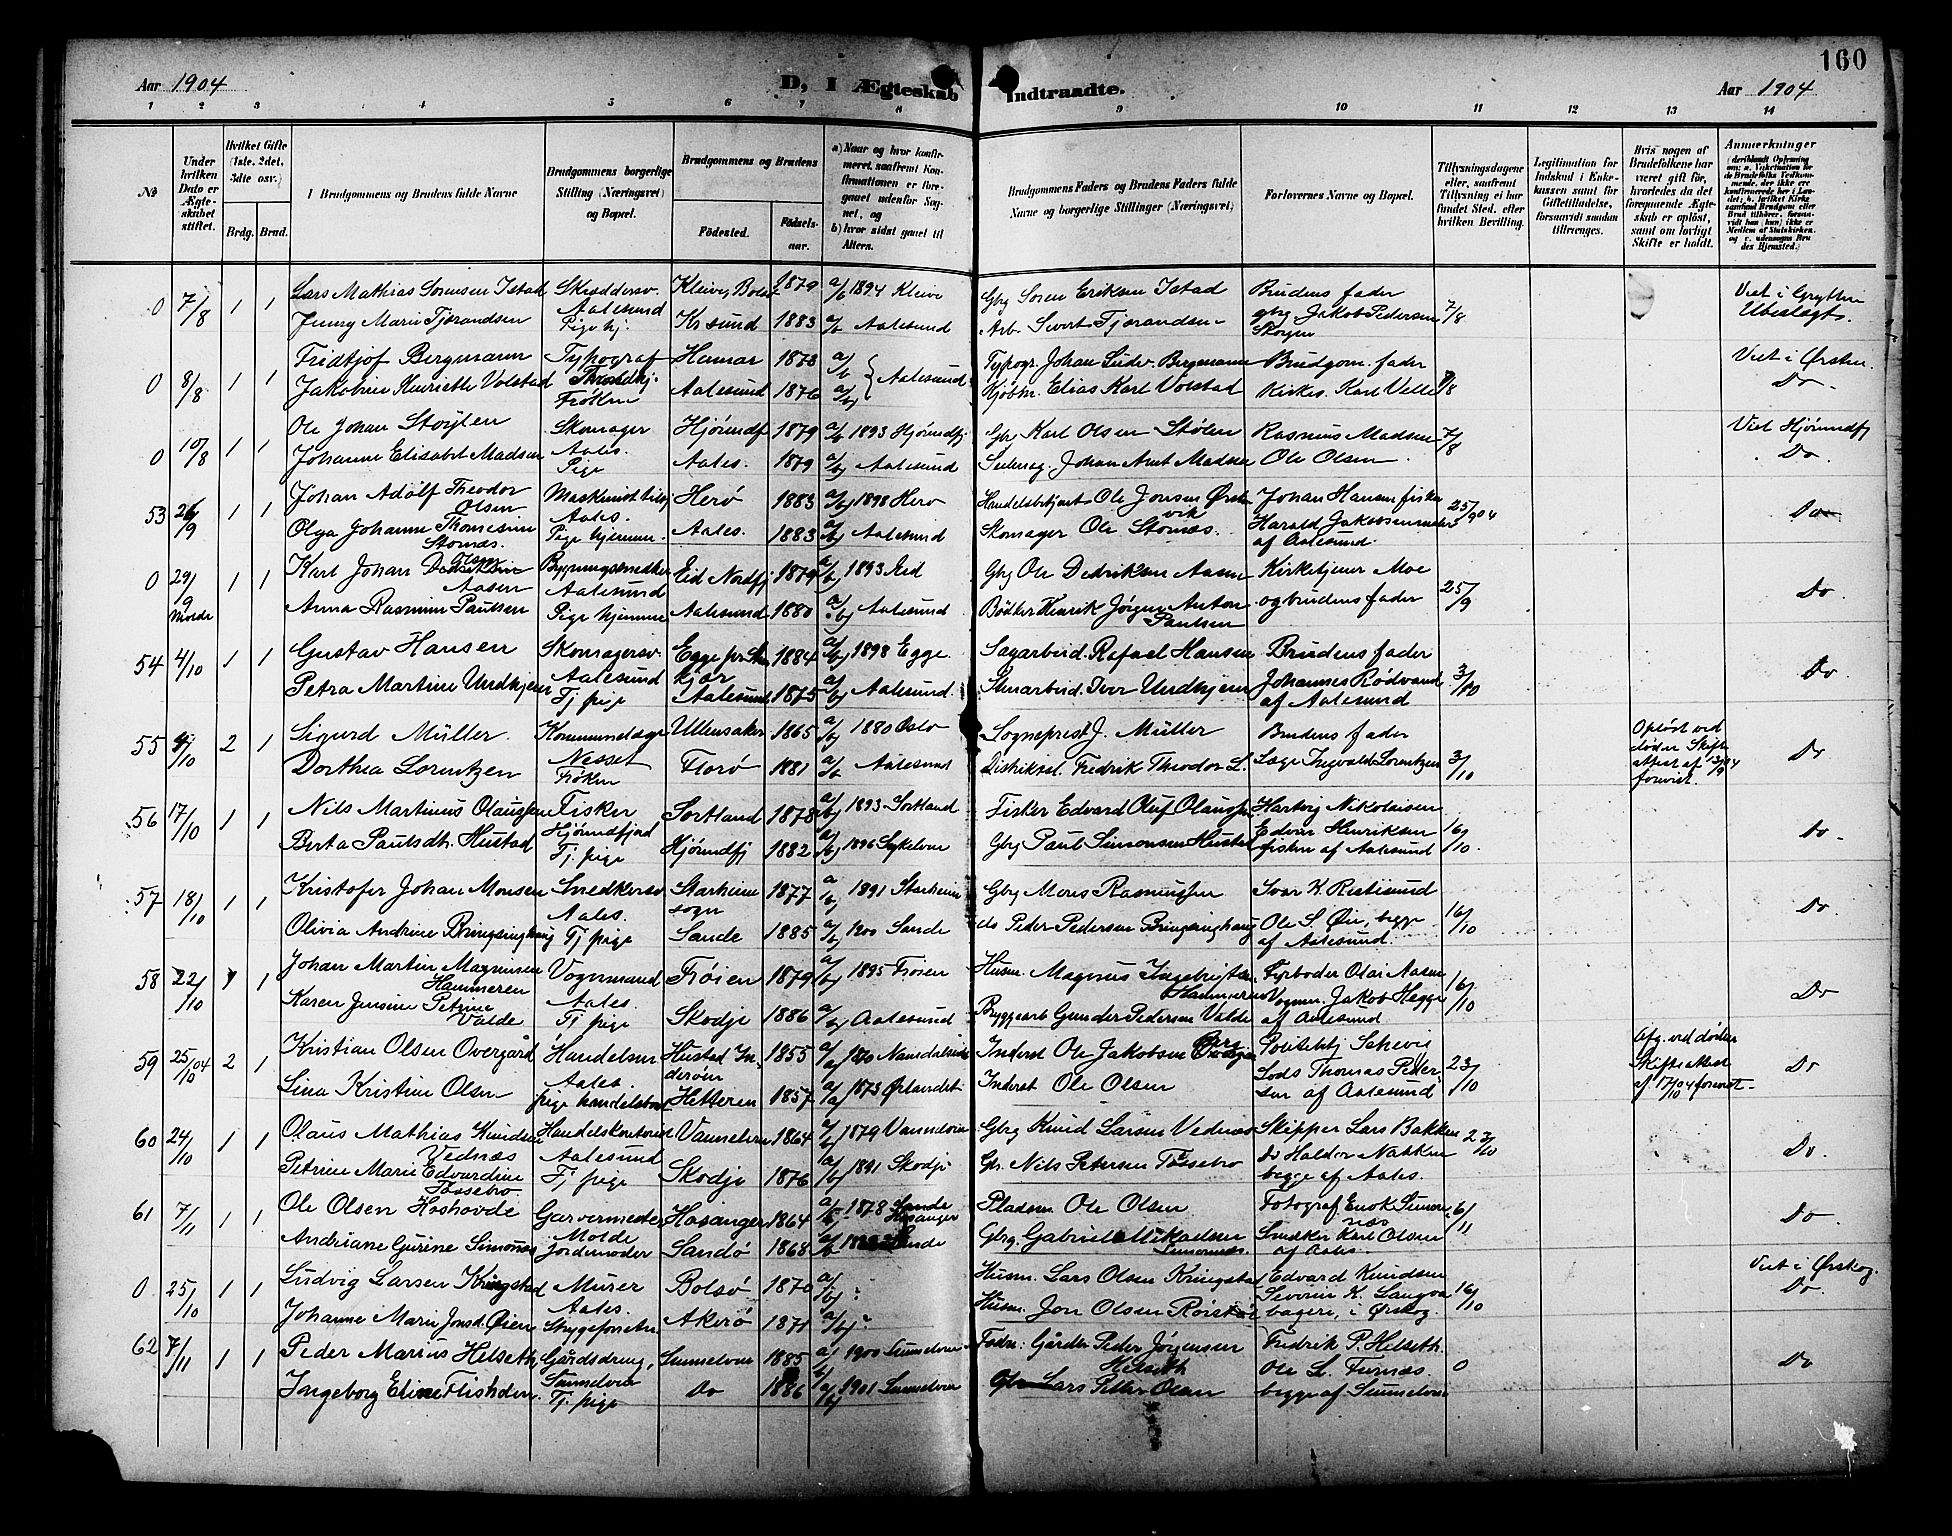 160
Aar 1904
D, I Ægteskab Indtraadte.
Aar 1904
1 2 3 4 5 6 7 8 9 10 11 12 13 14
No
Under hvilken Dato er Ægteskabet stiftet.
Hvilket Gifte (1ste, 2det, 3die osv.)
Brdg. Brud.
Brudgommens og Brudens fulde Navne
Brudgommens borgerlige Stilling (Næringsvei) og Bopæl.
Brudgommens og Brudens
Fødested.
Fødselsaar.
a) Naar og hvor konfirmeret, saafremt Konfirmationen er foregaaet udenfor Sognet, og
b) hvor sidst gaaet til Alters.
Brudgommens Faders og Brudens Faders fulde Navne og borgerlige Stillinger (Næringsvei)
Forlovernes Navne og Bopæl.
Tillysningsdagene eller, saafremt Tillysning ei har fundet Sted, efter hvilken Bevilling.
Legitimation for Indskud i Enkekassen samt for Giftetilladelse, forsaavidt saadan tiltrænges.
Hvis nogen af Brudefolkene har været gift før, hvorledes da det foregaaende Ægteskab er opløst, samt om lovligt Skifte er holdt.
Anmerkninger
0 7/8 1 1 Lars Mathias Sørensen Istad Skræddersv. Aalesund Kleive, Bolsø 1879 a/b 1894 Kleive Gbg Søren Eriksen Istad Brudens fader 7/8 Viet i Grytten
Jenny Marie Tjørandsen Pige hj. Krsund 1883 a/b Aalesund Arb. Sivert Tjørandsen gbg Jakob Pedersen Skorgen Ubeslægt.
0 8/8 1 1 Fridtjof Bergmann Typograf Hamar 1873 a/b Aalesund Typogr. Johan Ludv. Bergmann Brudgom. fader 7/8 Viet i Ørsten
Jakobine Henriette Volstad Frøken Aalesund 1876 a/b Kjøbm. Elias Karl Volstad Kirkes. Karl Velle Do
0 10/8 1 1 Ole Johan Støylen Skomager Aales. Hjørundfj 1879 a/b 1893 Hjørundfj. Gbg Karl Olsen Stølen Rasmus Madsen 7/8 Viet Hjørundfj
Johanne Elisabet Madsen Pige Aales. 1879 a/b Aalesund Johan Arnt Madsen Ole Olsen Do.
53 26/9 1 1 Johan Adolf Theodor Olsen Aales. Herø 1883 a/b 1898 Herø Ole Jonsen Ørstavik Johan Hansen fisker 25/9 04 Do
Olga Johanne Thomesine Stornæs. Pige hjemme. Aales. 1883 a/b Aalesund Skomager Ole Stornæs. Harald Jakobsen af Aalesund.
0 29/9 Molde 1 1 Karl Johan Olsen Aasen Bygningssnedker Aalesund Eid Nordfj 1879 a/b 1893 Eid Gbg Ole Dedriksen Aasen Kirketjener Moe 25/9 Do
Anna Rasmine Paulsen Pige hjemme Aalesund 1880 a/b Aalesund Bødker Henrik Jørgen Anton Paulsen og brudens fader
54 4/10 1 1 Gustav Hansen Skomagersv. Aalesund Egge pr. Stenkjær 1884 a/b 1898 Egge. Sagarbeid. Rafael Hansen Brudens fader 3/10 Do
Petra Martine Urdkjenn Tj pige Aalesund 1875 a/b Aalesund. Stenarbeid. Iver Urdkjenn Johannes Rødvand af Aalesund
55 4/10 2 1 Sigurd Müller. Kommunelæge Nesset Ullensaker 1865 a/b 1880 Oslo Sogneprest J. Müller Brudens fader 3/10 Opløst ved døden Skifteattest af 13/9 04 forevist. Do
Dorthea Lorentzen Frøken Florø 1881 a/b Aalesund Distriktsl. Fredrik Theodor L. Læge Ingvald Lorentzen
56 17/10 1 1 Nils Martinus Olaussen Fisker Hjørundfjord Sortland 1878 a/b 1893 Sortland Fisker Edvard Oluf Olaussen Hartvig Nikolaisen 16/10. Do
Berta Paulsdt. Hustad Tj. pige Hjørundfj 1882 a/b 1896 Sykelven Gbg Paul Simonsen Hustad Edvin Henriksen fiskere af Aalesund
57 18/10 1 1 Kristofer Johan Monsen Snedkersv. Aales. Starheim sogn 1877 a/b 1891 Starheim Gbg Mons Rasmussen Ivar K. Ristesund 16/10 Do
Olivia Andrine Bringsinghaug Tj pige Sande 1885 a/b 1900 Sande do Peder Pedersen Bringsinghaug Ole S. Øie, begge af Aalesund.
58 22/10 1 1 Johan Martin Magnussen Hammeren Vognmand Aales. Frøien 1879 a/b 1895 Frøien Husm. Magnus Ingebrigtsen Hammeren Fyrbøder Olai Aasen 16/10 Do
Karen Jensine Petrine Valde Tj pige Skodje 1886 a/b Aalesund Byggearb Gunder Pedersen Valde Vognm. Jakob Hegge af Aalesund
59 25/10 04 2 1 Kristian Olsen Overgård Handelsm Aales. Hustad Inderøen 1855 a/a 1870 Namdalseid Inderst Ole Jakobsen Politibtj Schevig 23/10 Afg. ved døden Skifteattest af 17/10 04 forevist Do
Lina Kristine Olsen pige handelsbest. Hitteren 1857 a/a 1873 Ørlandet Inderst Ole Olsen Lods Thomas Pedersen af Aalesund
60 24/10 1 1 Olaus Mathias Knudsen Vednæs Handelskontorist Aalesund Vannelven 1864 a/b 1879 Vannelven Gbg Knud Larsen Vednæs Skipper Lars Bakken 23/10 Do.
Petrine Marie Edvardine Fossebro Tj pige Skodje 1876 a/b 1891 Skodje Gbr. Nils Petersen Fossebro do Haldor Nakken begge af Aales.
61 7/11 1 1 Ole Olsen Høshovde Garvermester Molde Hosanger 1864 a/b 1878 Hosanger Pladsm. Ole Olsen Fotograf Enok Simonnæs 6/11 Do
Andriane Gurine Simonæs Jordemoder Sandø 1868 a/b Sande Gbrg. Gabriel Mikaelsen Simonnæs. Snedker Karl Olsen af Aales.
0 25/10 1 1 Ludvig Larsen Kringstad Murer Aales. Bolsø 1870 a/b Husm. Lars Olsen Kringstad Edvard Knudsen 16/10 Viet i Ørskog.
Johanne Marie Jonsd. Øien Akerø 1871 a/b Husm. Jon Olsen Severin K. Langva bagere, i Ørskog. Do.
62 7/11 1 1 Peder Marius Helseth Gårdsdreng, Sunnelven Sunnelven 1885 a/b 1900 Sunnelven Peder Jørgensen Helseth Fredrik P. Helseth. 0 Do
Ingeborg Eline Tj. pige Do 1886 a/b 1901 Sunnelven Lars Petter Olsen Ole L. Furnæs. begge af Sunnelven